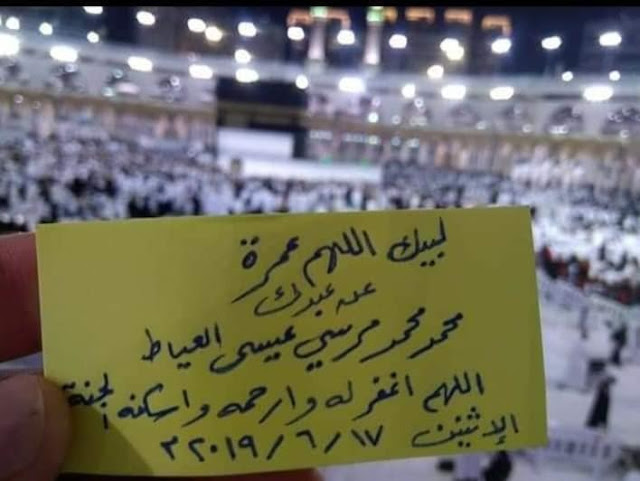 لبيك اللهم عمرة
عن عبدك
محمد محمد مرسي عيسى العياط
اللهم اغفر له وارحمه واسكنه الجنة
الإثنين ٢٠١٩/٦/١٧ م